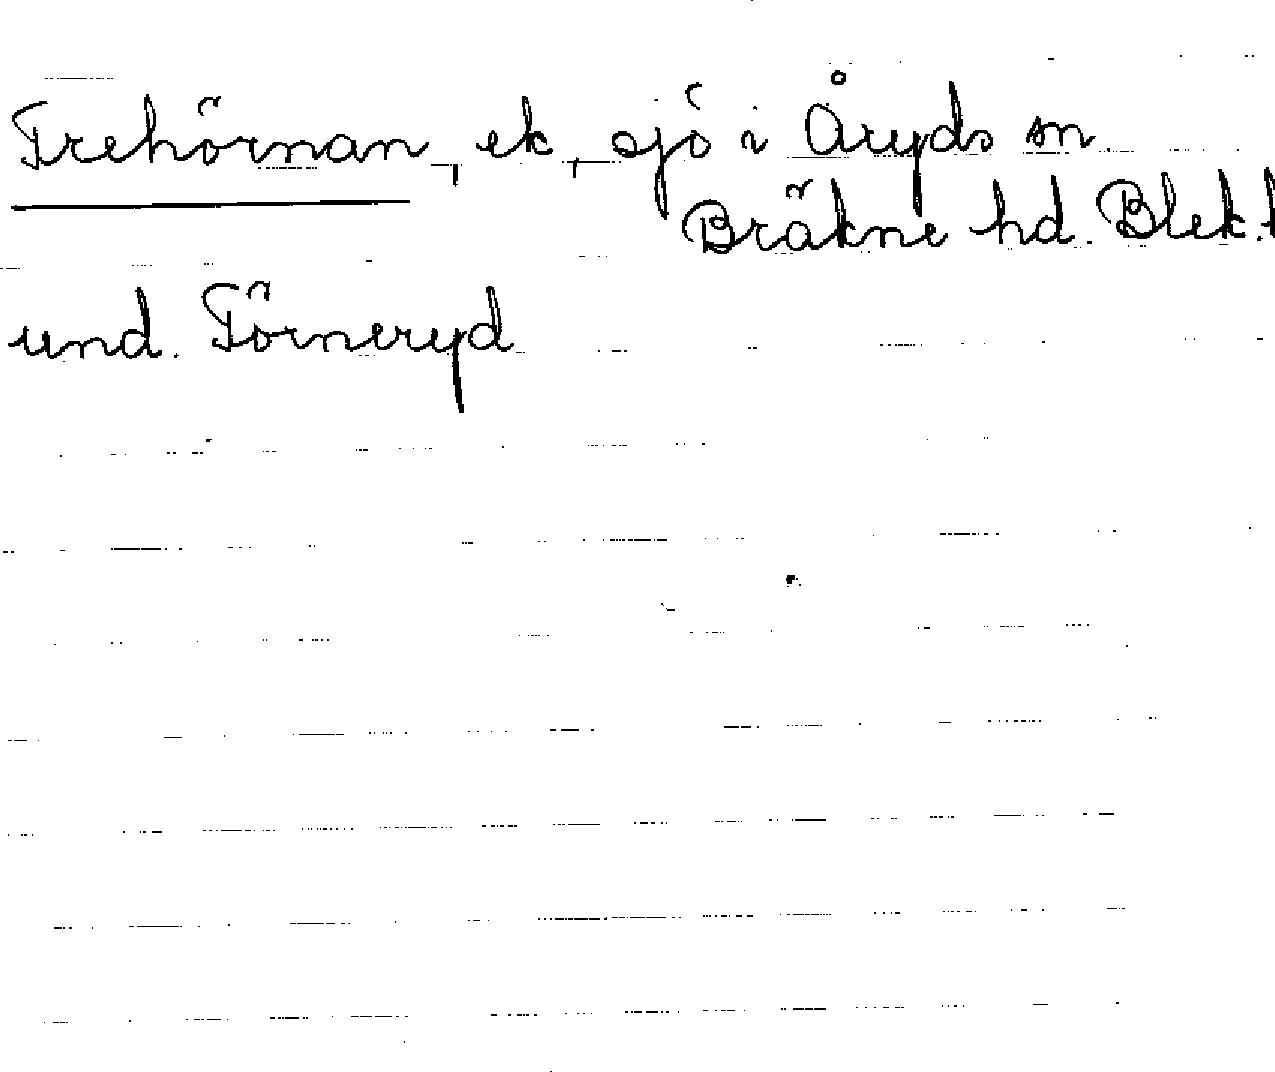 Trehörnan, ek, sjö i Åryds sn.
Bräkne hd. Blek. l
und. Törneryd